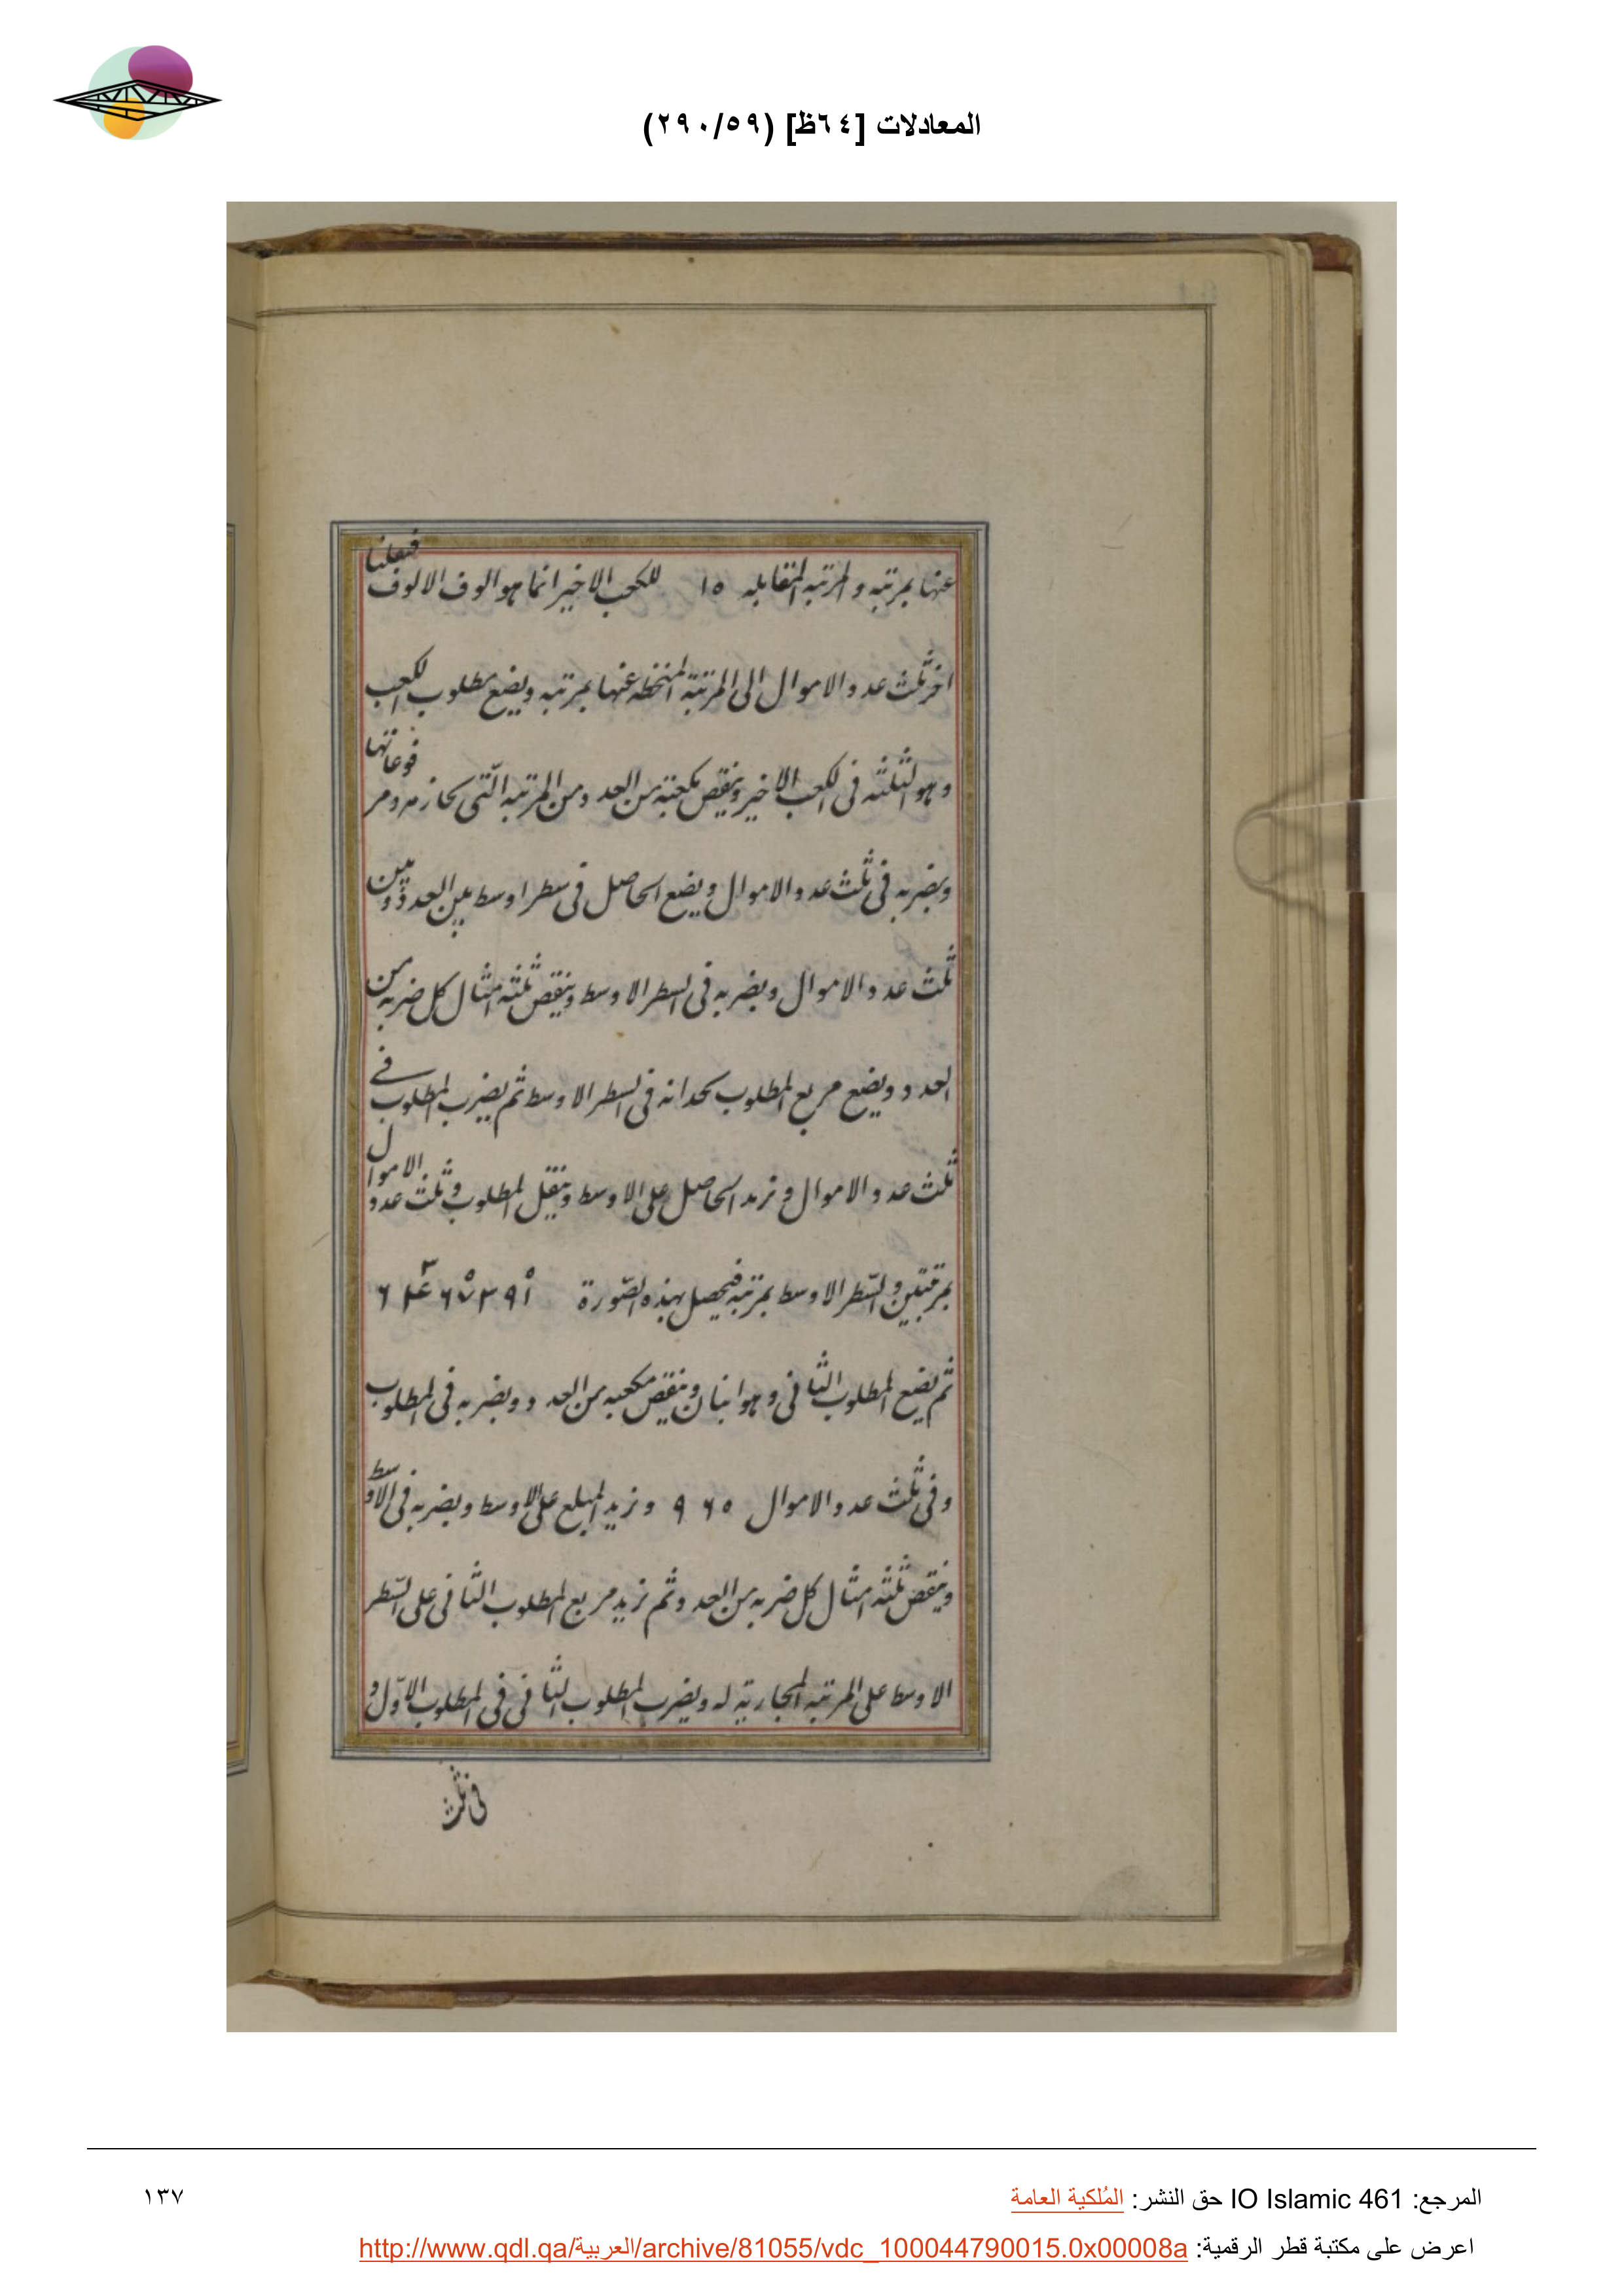 المعادلات [٦٤ظ] (٢٩٠/٥٩)
عنها بمرتبه والمرتبه المقابله ١٥ للكعب الاخير انما هو الوف الالوف فنقلنا
اخر ثلث عدد الاموال الى المرتبة المنحطه عنها بمرتبه ويضع مطلوب الكعب
وهو الثلثه فى الكعب الاخير وينقص مكعبه من العدد ومن المرتبه التى
ويضربه فى ثلث عدد الاموال ويضع الحاصل فى سطر اوسط بين العدد وبين
ثلث عدد الاموال ويضربه فى السطر الاوسط وينقص ثلثه امثال كل ضربه من
العدد ويضع مربع المطلوب بحذائه فى السطر الاوسط ثم يضرب المطلوب فے
ثلث عدد الاموال ونزيد الحاصل على الاوسط وينقل المطلوب وثلث عدد الاموال
بمرتبتين والسّطر الاوسط بمرتبه فيحصل بهذه الصّورة
ثم يضع المطلوب الثانى وهو اثنان وينقص مكعبه من العدد ويضربه فى المطلوب
وفى ثلث عدد الاموال ٩٦٥ ونزيد المبلغ على الاوسط ويضربه فى الاوسط
وينقص ثلثه امثال كل ضربه من العدد وثم نزيد مربع المطلوب الثانى على السّطر
الاوسط على المرتبه المحاريه له ويضرب المطلوب الثانى فى المطلوب الاوّل و
فى ثلث
المرجع: IO Islamic 461 حق النشر: المُلكية العامة
١٣٧
اعرض على مكتبة قطر الرقمية: http://www.qdl.qa/العربية/archive/81055/vdc_100044790015.0x00008a